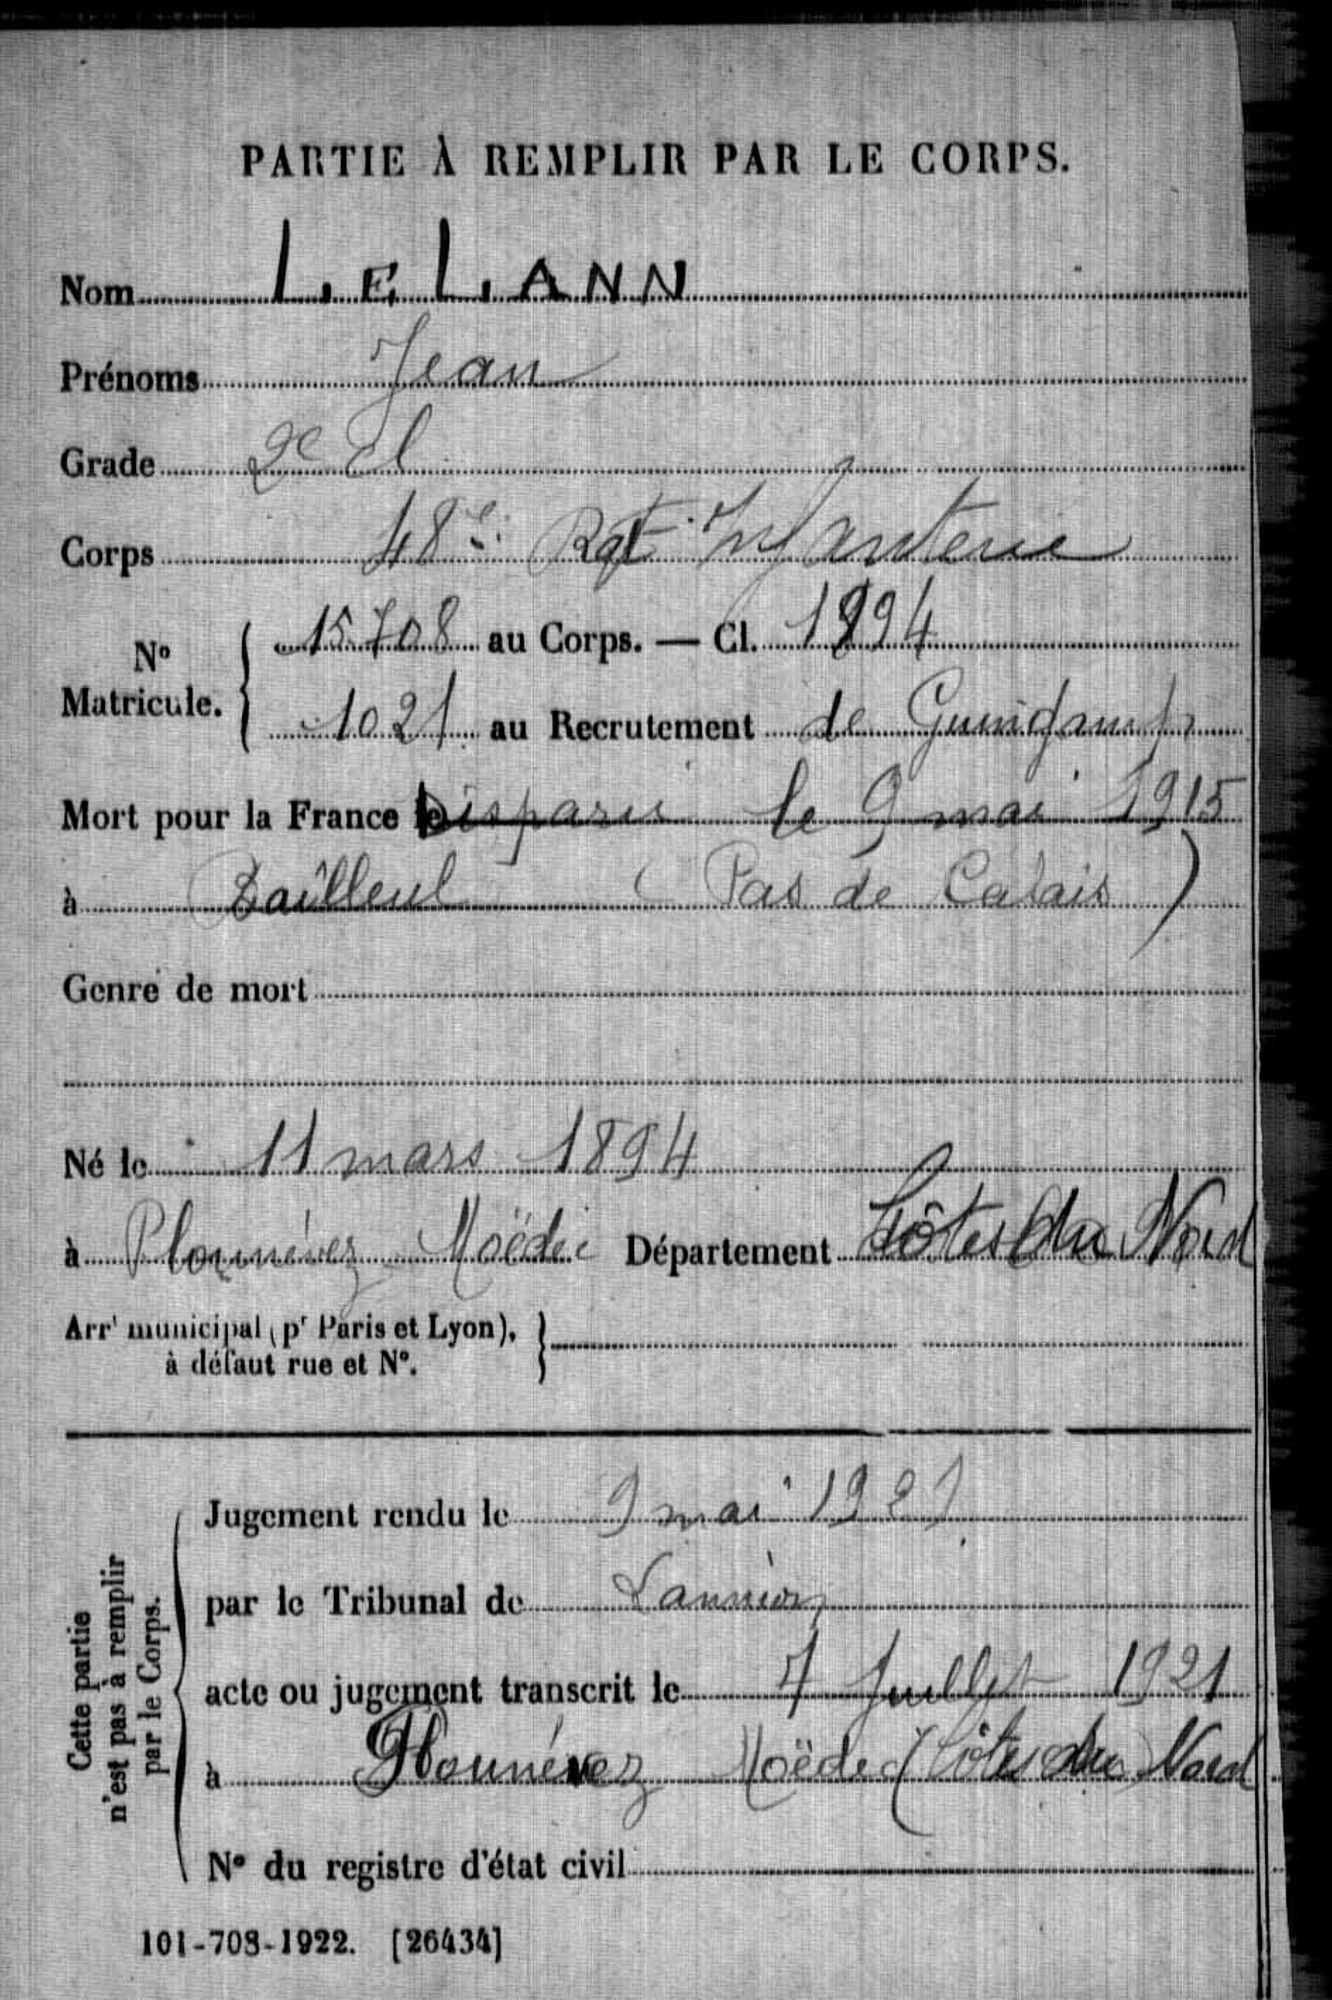 PARTIE À REMPLIR PAR LE CORPS.
Nom LE LANN
Prénoms Jean
Grade 2e Cl
Corps 48e Rgt Infanterie
No Matricule. 15708 au Corps. — Cl. 1894
1021 au Recrutement de Guingamp
Mort pour la France le Disparu le 9 mai 1915
à Bailleul (Pas de Calais)
Genre de mort
Né le 11 mars 1894
à Plounévez Moëdec Département Côtes du Nord
Arrt municipal (pr Paris et Lyon), à défaut rue et No.
Cette partie n'est pas à remplir par le Corps.
Jugement rendu le 9 mai 1921
par le Tribunal de Lannion
acte ou jugement transcrit le 7 Juillet 1921
à Plounévez Moëdec (Côtes du Nord
No du registre d'état civil
101-708-1922. [26434]